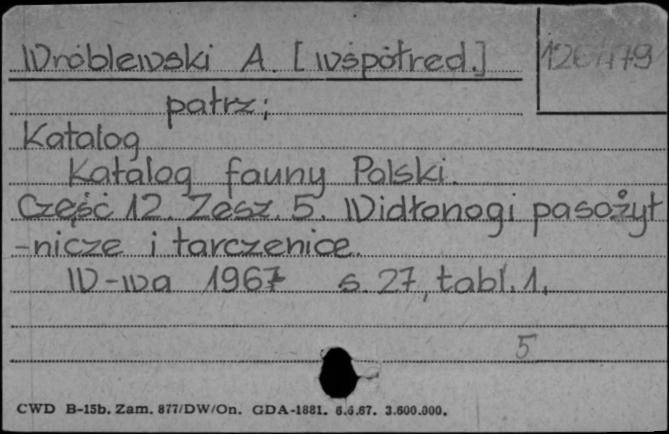 Wróblewski A. [współred.]
patrz;
Katalog
Katalog fauny Polski.
Część 12. Zesz. 5. Widłonogi pasożyt
-nicze i tarczenice.
W-wa 1967 s. 27, tabl. 1.
5
CWD B-15b. Zam. 877/DW/On. GDA-1881. 6.6.67. 3.600.000.